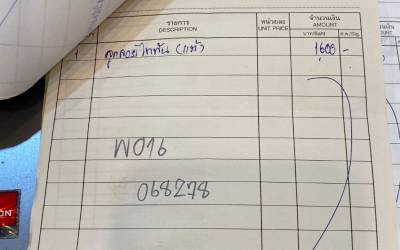 รายการ
DESCRIPTION
หน่วยละ
UNIT PRICE
จำนวนเงิน
AMOUNT
บาท/Baht
ส.ต./Stg.
1 ลูกลอยไททัน (แท้) 1600 -
W016
068278
ON